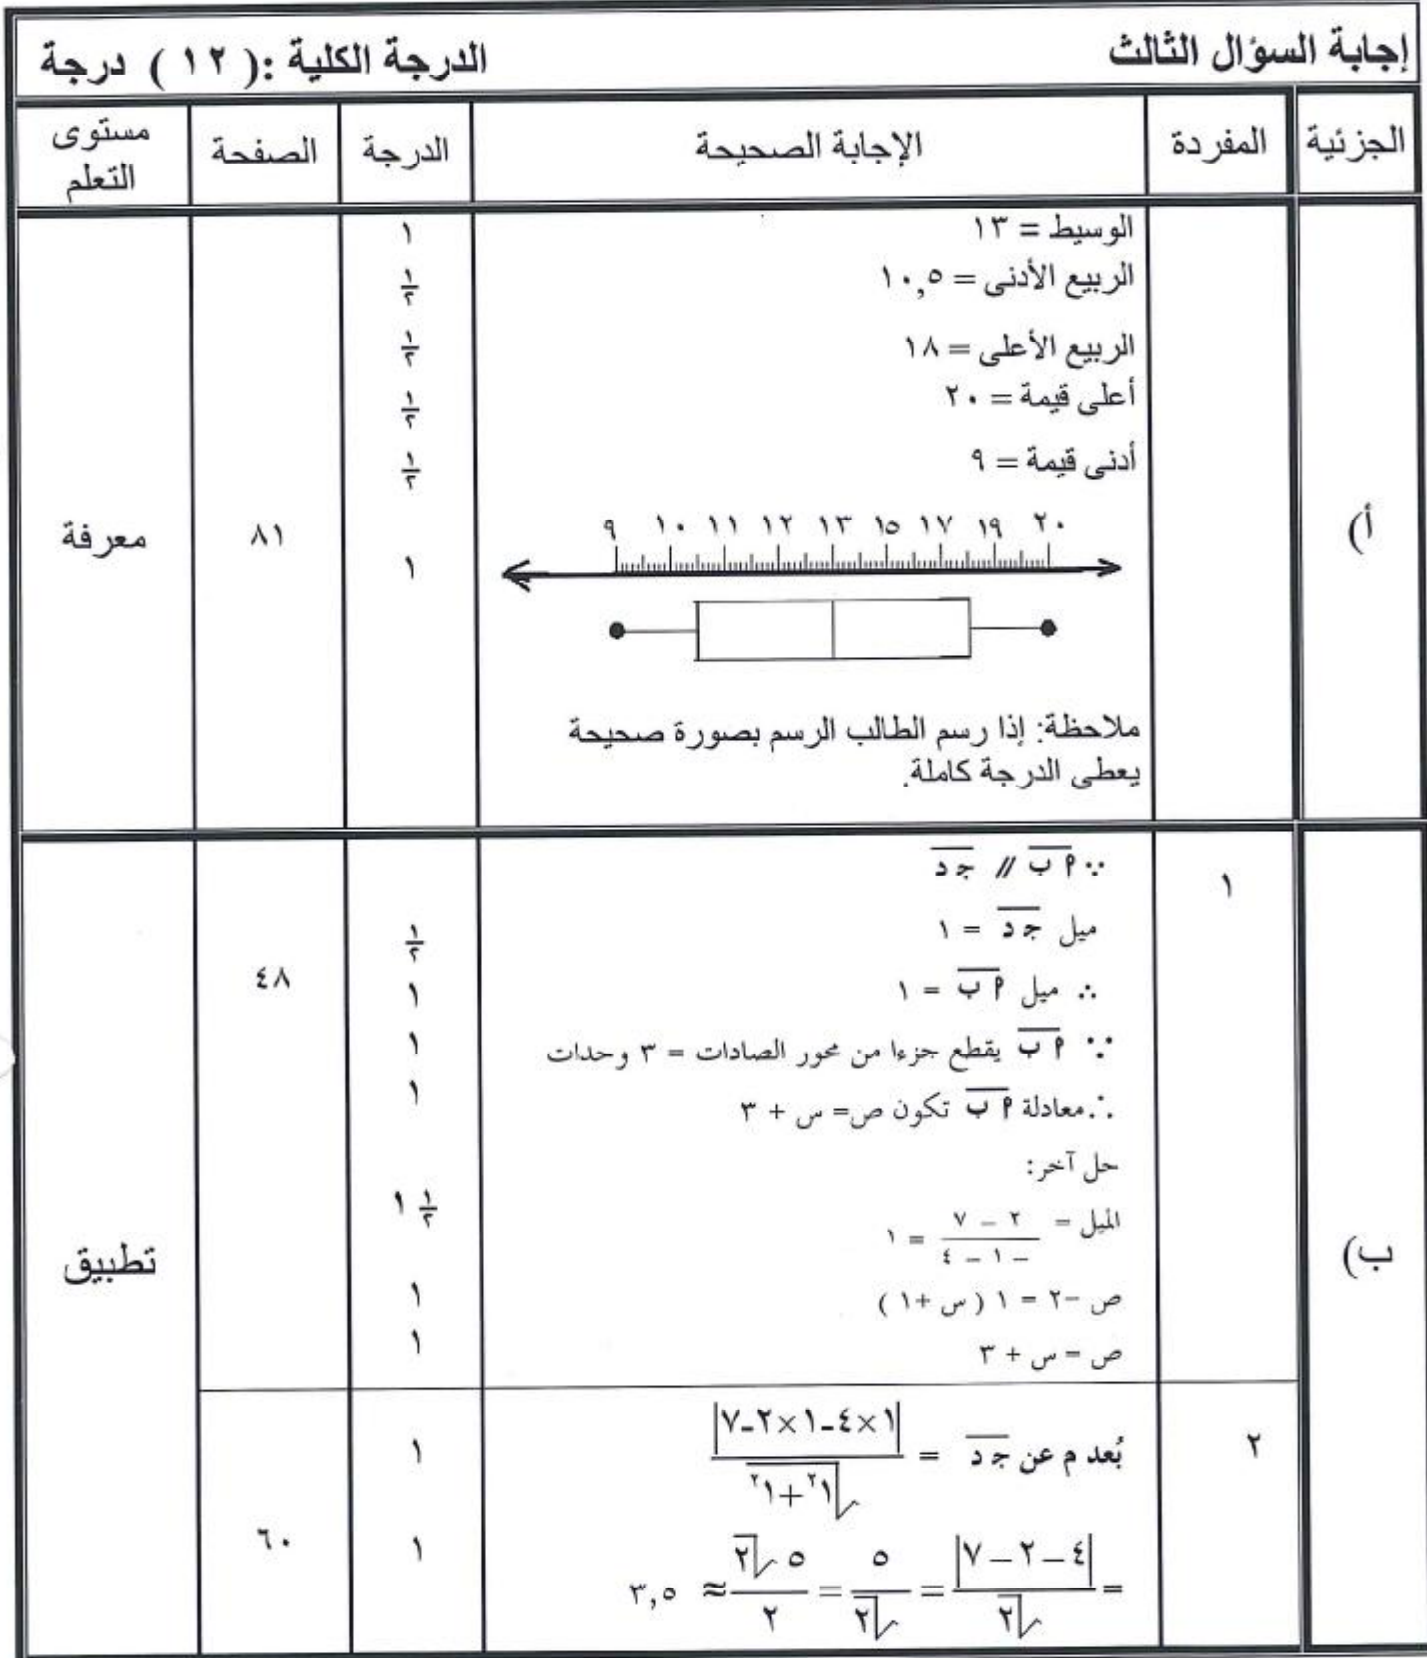 إجابة السؤال الثالث الدرجة الكلية :( ١٢ ) درجة
الجزئية المفردة الإجابة الصحيحة الدرجة الصفحة مستوى التعلم
أ)
الوسيط = ١٣ ١
الربيع الأدنى = ١٠,٥ ١/٢
الربيع الأعلى = ١٨ ١/٢
أعلى قيمة = ٢٠ ١/٢
أدنى قيمة = ٩ ١/٢
٩ ١٠ ١١ ١٢ ١٣ ١٥ ١٧ ١٩ ٢٠
١ ٨١ معرفة
ملاحظة: إذا رسم الطالب الرسم بصورة صحيحة
يعطى الدرجة كاملة.
ب) ١
∵ م ب // جـ د
ميل جـ د = ١ ١/٢
∴ ميل م ب = ١ ١ ٤٨
∵ م ب يقطع جزءا من محور الصادات = ٣ وحدات ١
∴ معادلة م ب تكون ص= س + ٣ ١
حل آخر:
الميل = (٢ – ٧)/(– ١ – ٤) = ١ ١ ١/٢
تطبيق
ص –٢ = ١ ( س +١ ) ١
ص = س + ٣ ١
٢ بُعد م عن جـ د = |١×٤-١×٢-٧|/√(١٢+١٢) ١
= |٤ – ٢ – ٧|/√٢ = ٥/√٢ = ٥√٢/٢ ≈ ٣,٥ ١ ٦٠